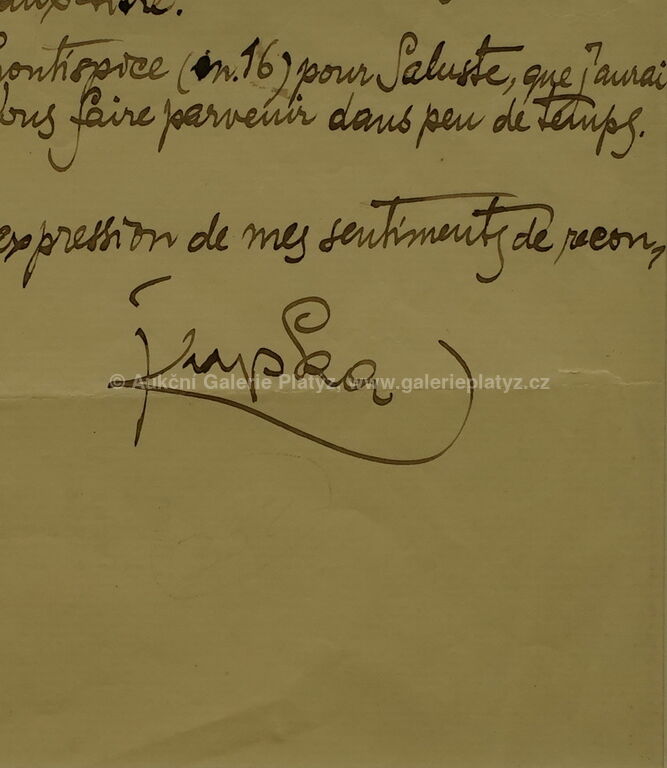 rontispice (in.16) pour Saluste, que j'aurai
Vous faire parvenir dans peu de temps.
expression de mes sentiments de recon,
Kupka
© Aukční Galerie Platyz, www.galerieplatyz.cz